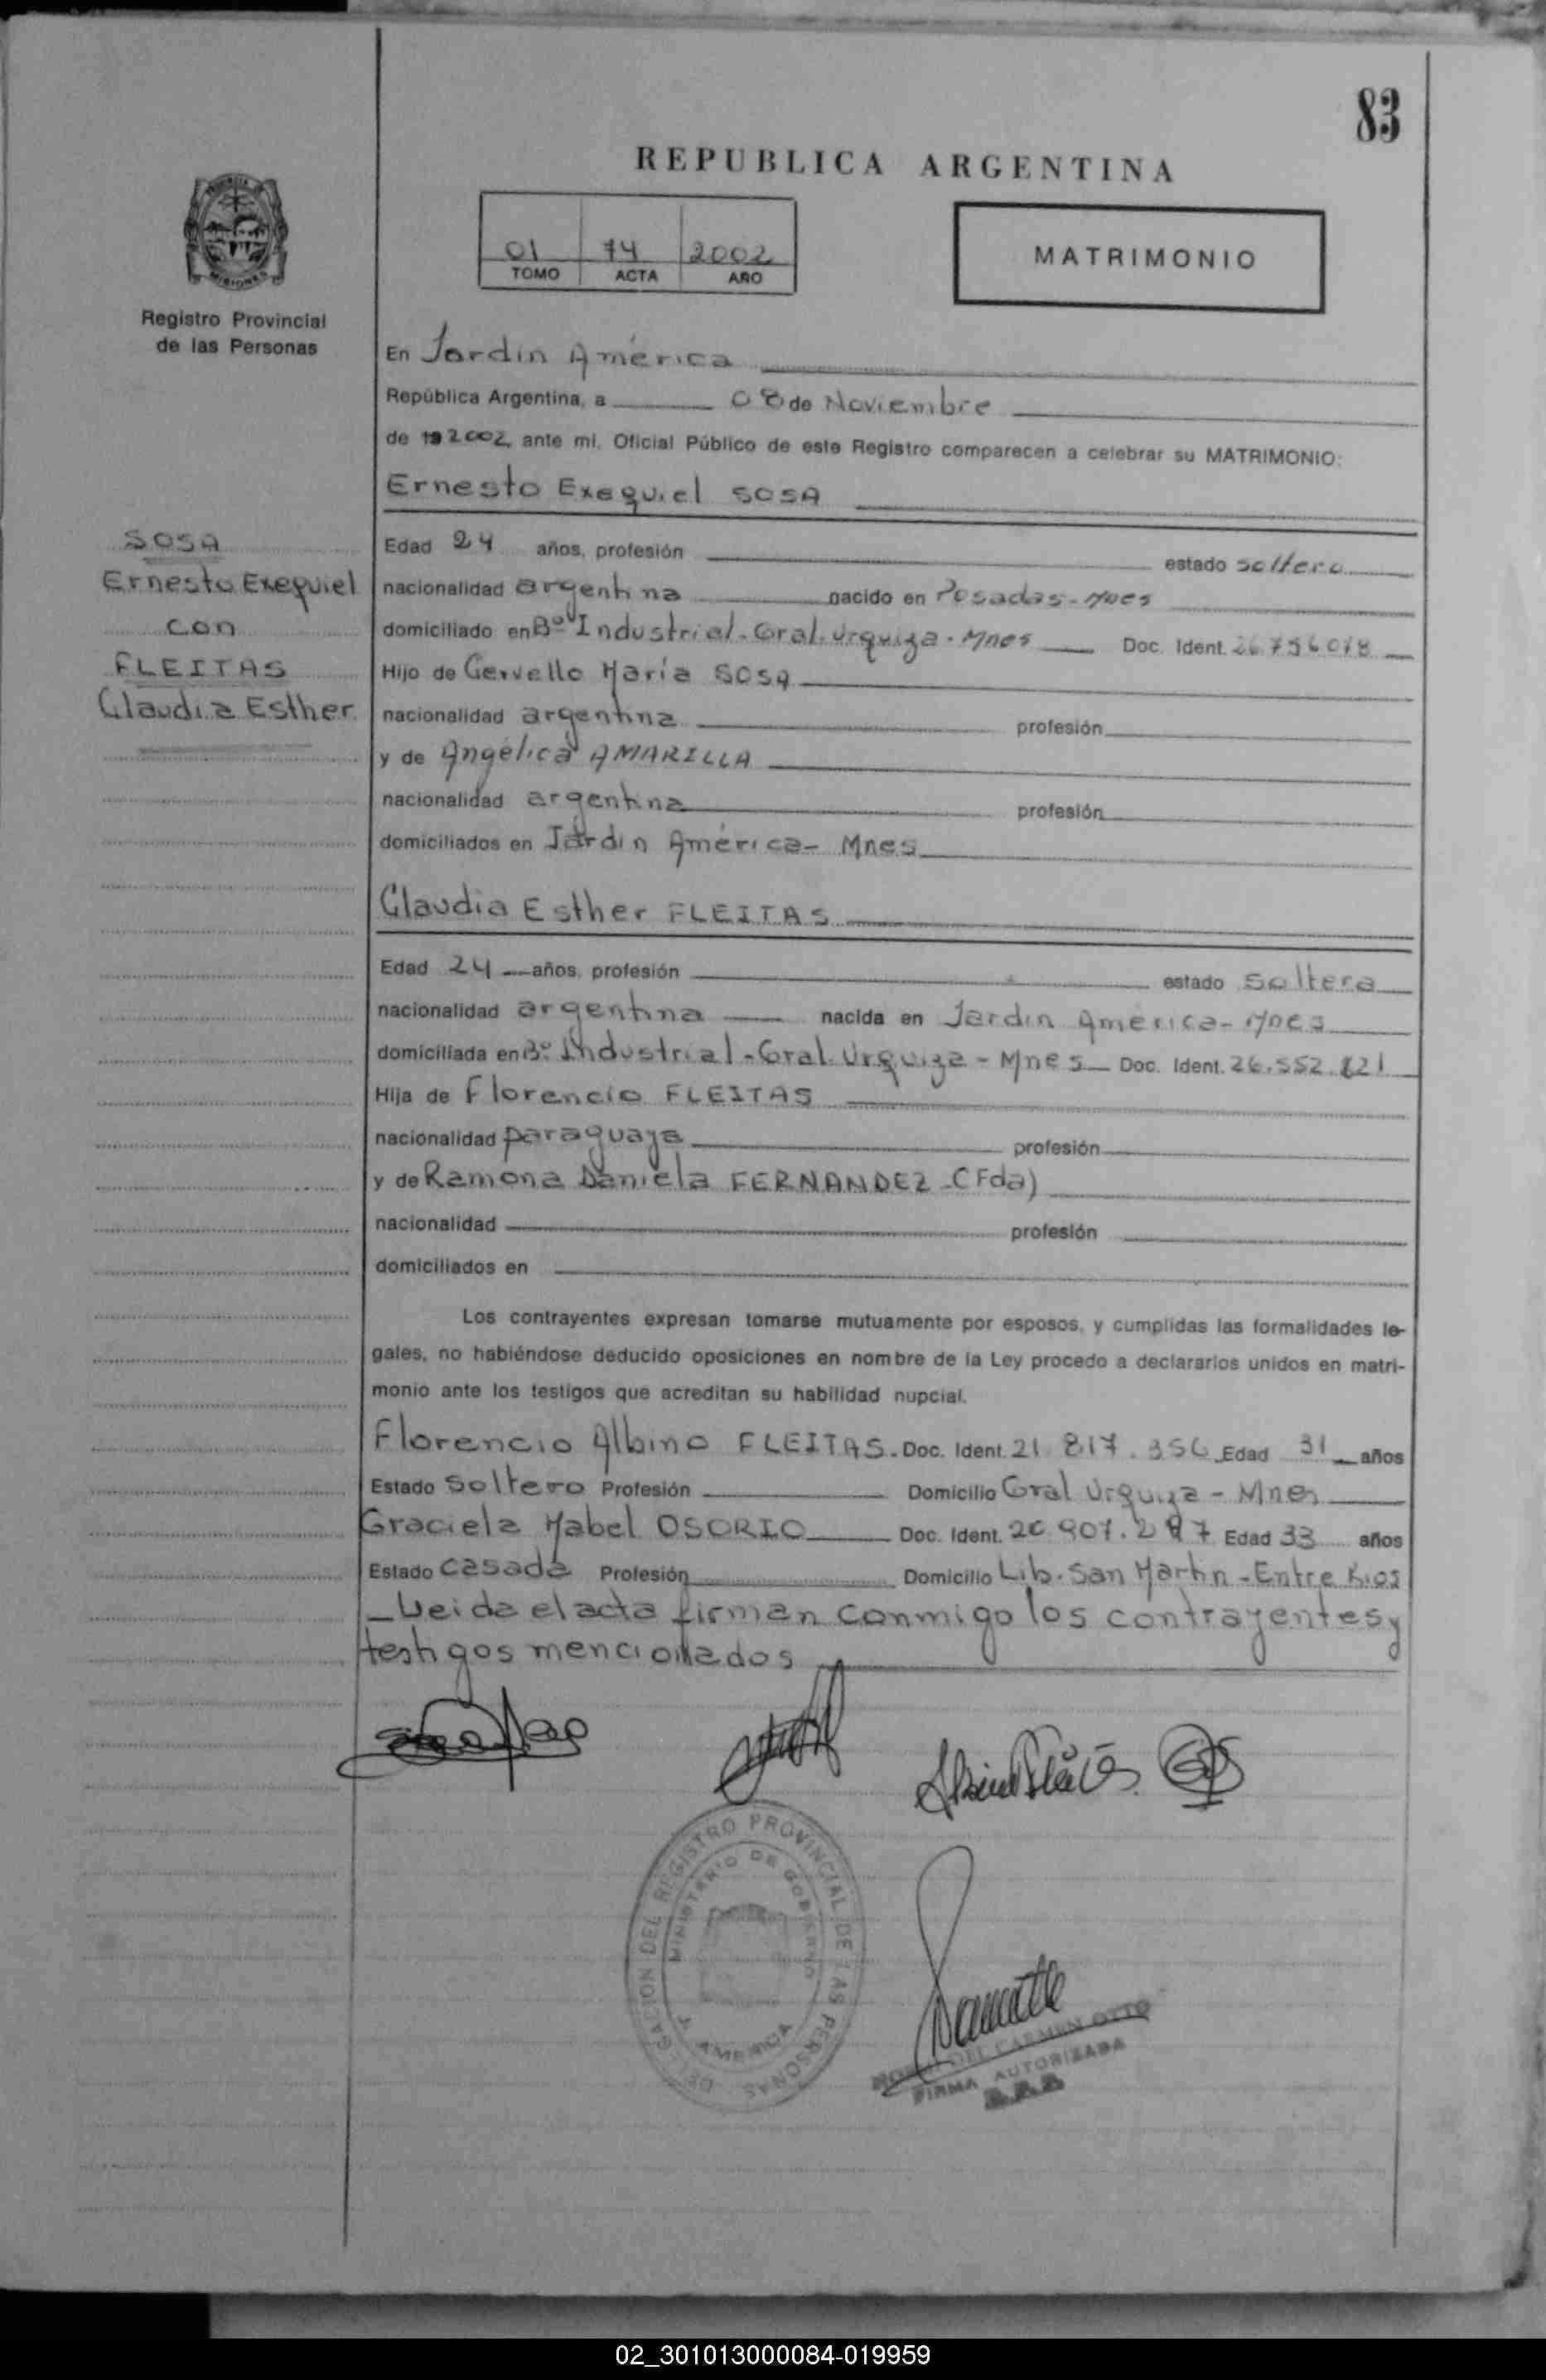 83
REPUBLICA ARGENTINA
01 74 2002
TOMO ACTA AÑO
MATRIMONIO
Registro Provincial
de las Personas
En Jardín América
República Argentina, a 08 de Noviembre
de 19 2002 ante mí, Oficial Público de este Registro comparecen a celebrar su MATRIMONIO:
Ernesto Exequiel SOSA
SOSA
Ernesto Exequiel
con
FLEITAS
Claudia Esther
Edad 24 años, profesión estado soltero
nacionalidad argentina nacido en Posadas-Mnes
domiciliado en Bº Industrial-Gral. Urquiza-Mnes Doc. Ident.
Hijo de María SOSA
nacionalidad argentina profesión
y de Angélica AMARILLA
nacionalidad argentina profesión
domiciliados en Jardín América- Mnes
Claudia Esther FLEITAS
Edad 24 años, profesión estado soltera
nacionalidad argentina nacida en Jardín América-Mnes
domiciliada en Bº Industrial-Gral. Urquiza-Mnes Doc. Ident. 26.552.
Hija de Florencio FLEITAS
nacionalidad paraguaya profesión
y de Ramona Daniela FERNANDEZ-(Fda)
nacionalidad profesión
domiciliados en
Los contrayentes expresan tomarse mutuamente por esposos, y cumplidas las formalidades le-
gales, no habiéndose deducido oposiciones en nombre de la Ley procedo a declararlos unidos en matri-
monio ante los testigos que acreditan su habilidad nupcial.
Florencio Albino FLEITAS. Doc. Ident. 21.817.356 Edad 31 años
Estado soltero Profesión Domicilio Gral Urquiza-Mnes
Graciela Mabel OSORIO Doc. Ident. Edad 33 años
Estado casada Profesión Domicilio Lib. San Martín-Entre Rios
_Leida el acta firman conmigo los contrayentes y
testigos mencionados
DELEGACION DEL REGISTRO PROVINCIAL DE LAS PERSONAS
MINISTERIO DE GOBIERNO
AMERICA
DEL CARMEN OTTO
FIRMA AUTORIZADA
02_301013000084-019959